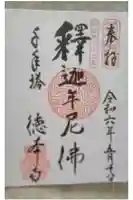 奉拝
令和六年
釋迦牟尼佛
千年塔
徳本寺